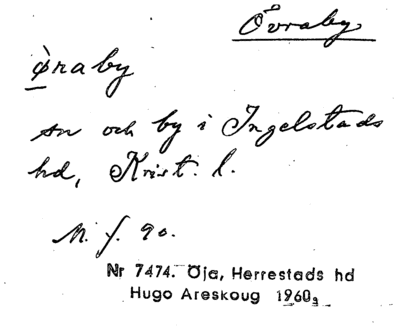 Övraby
ö̀raby
sn och by i Ingelstads
hd, Krist. l.
M. f. 90.
Nr 7474. Öja, Herrestads hd
Hugo Areskoug 1960